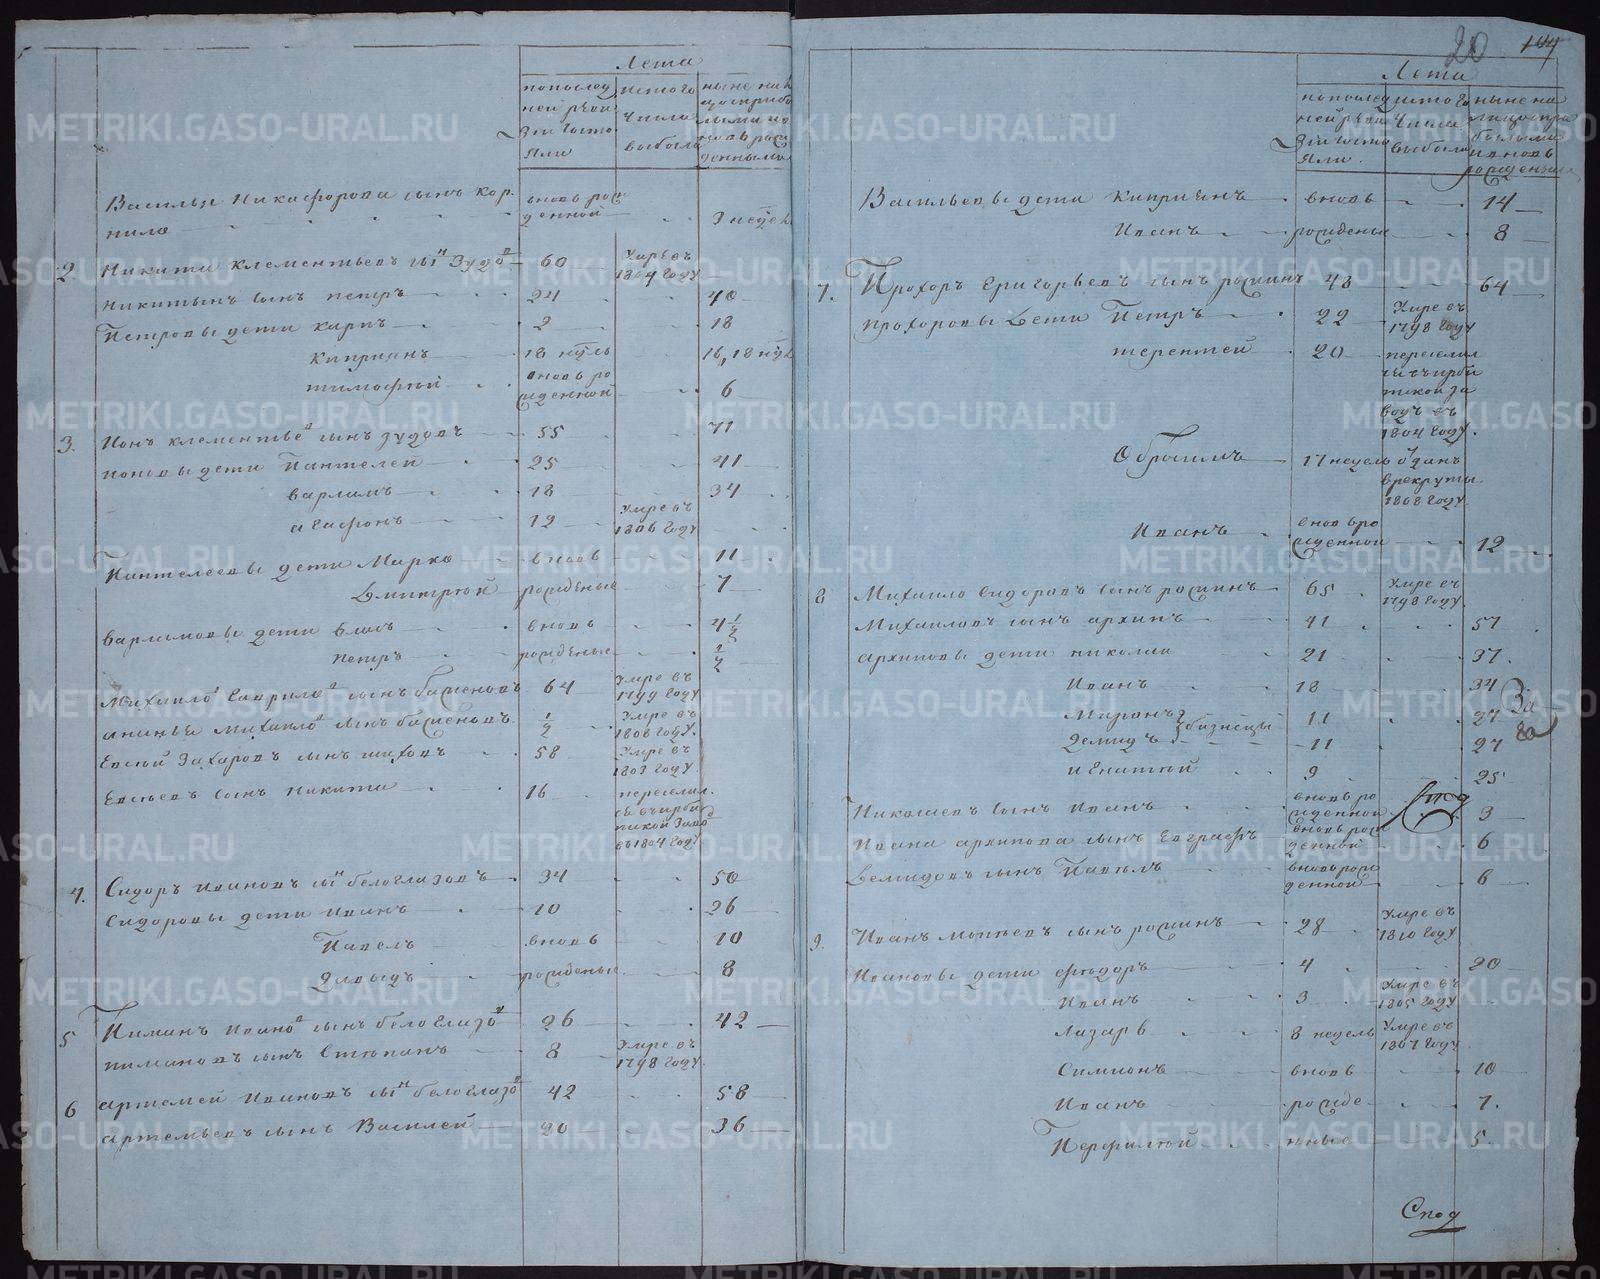 Лета
попослед
ней ревизии состояли
изтого числа выбыло
ныне налицо
Василья Никифорова сынъ Кор
нило
вновь рож
денной
3 недел
2. Никита Клементьевъ сынъ Зудовъ 60 Умре въ 1804 году
Никитинъ сынъ Петръ 24 40
Петровы дети Карпъ 2 18
Киприянъ 18 нѣдѣль 16, 18 нѣд
Тимофѣй вновь рожденной 6
3. Ионъ Клементьевъ сынъ Зудовъ 55 71
Ионовы дети Пантелей 25 41
Варламъ 18 34
Агафонъ 12 Умре въ 1806 году
Пантелеевы дети Марко вновь 11
Дмитрей рожденые 7
Варламовы дети вновь 4 1/2
Петръ рожденые 1/2
Михаило Гаврилов сынъ Баженовъ 64 Умре въ 1799 году
Ананья Михайлов сынъ Баженовъ 1/2 Умре въ 1806 году
Евсей Захаровъ сынъ 58 Умре въ 1803 году
Евсеевъ сынъ Никита 16 переселил
ся въ ирбит
ской завод
въ 1804 году
4. Сидоръ Ивановъ сынъ Белоглазовъ 34 50
Сидоровы дети Иванъ 10 26
Павелъ вновь 10
Давыдъ рожденые 8
5 Пиманъ Иванов сынъ Белоглазов 26 42
Пимановъ сынъ Степанъ 8 Умре въ 1798 году
6 Артемей Ивановъ сынъ Белоглазов 42 58
Артемьевъ сынъ Василей 20 36
20
Лета
попослед
ней ревизии состояли
изтого числа выбыло
ныне на
лицо
Васильевы дети Киприянъ вновь 14
Иванъ рожденые 8
7. Прохоръ Григорьевъ сынъ Рожинъ 48 64
Прохоровы дети Петръ 22 Умре въ 1798 году
Терентей 20 переселил
ся въ ирбит
ской за
водъ въ
1804 году.
17 недель отданъ
врекруты
1808 году
Иванъ вновь ро
жденной 12
8 Михаило Сидоровъ сынъ Рожинъ 65 Умре въ 1798 году
Михаиловъ сынъ Архипъ 41 57
Архиповы дети Николай 21 37.
Иванъ 18 34
Миронъ близнецы 11 27
Демидъ 11 27
Игнатей 9 25
Николаевъ сынъ Иванъ вновь ро
жденной 3
Ивана Архипова сынъ Евграфъ вновь рож
денной 6
Демидовъ сынъ Павелъ вновь рож
денной 6
9. Иванъ сынъ Рожинъ 28 Умре въ 1810 году
Ивановы дети Федоръ 4 20
Иванъ 3 Умре въ 1805 году
Лазарь 8 недель Умре въ 1807 году
Симионъ вновь 10
Иванъ рожде 7.
Перфилей нные 5.
METRIKI.GASO-URAL.RU